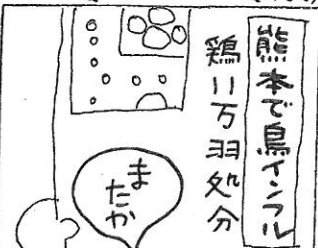 熊本で鳥インフル
鶏11万羽処分
また
か